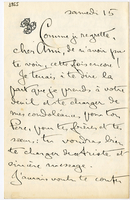 samedi 15
Comme je regrette,
cher Ami, de n'avoir pu
te voir, cette fois encor!
Je tenais, à te dire la
part que je prends à votre
deuil et te charger de
mes condoléances, pour ton
frère, pour tes frères et ta
sœur; tu voudras bien
te charger de ce triste et
sincère message.
J'aurais voulu te